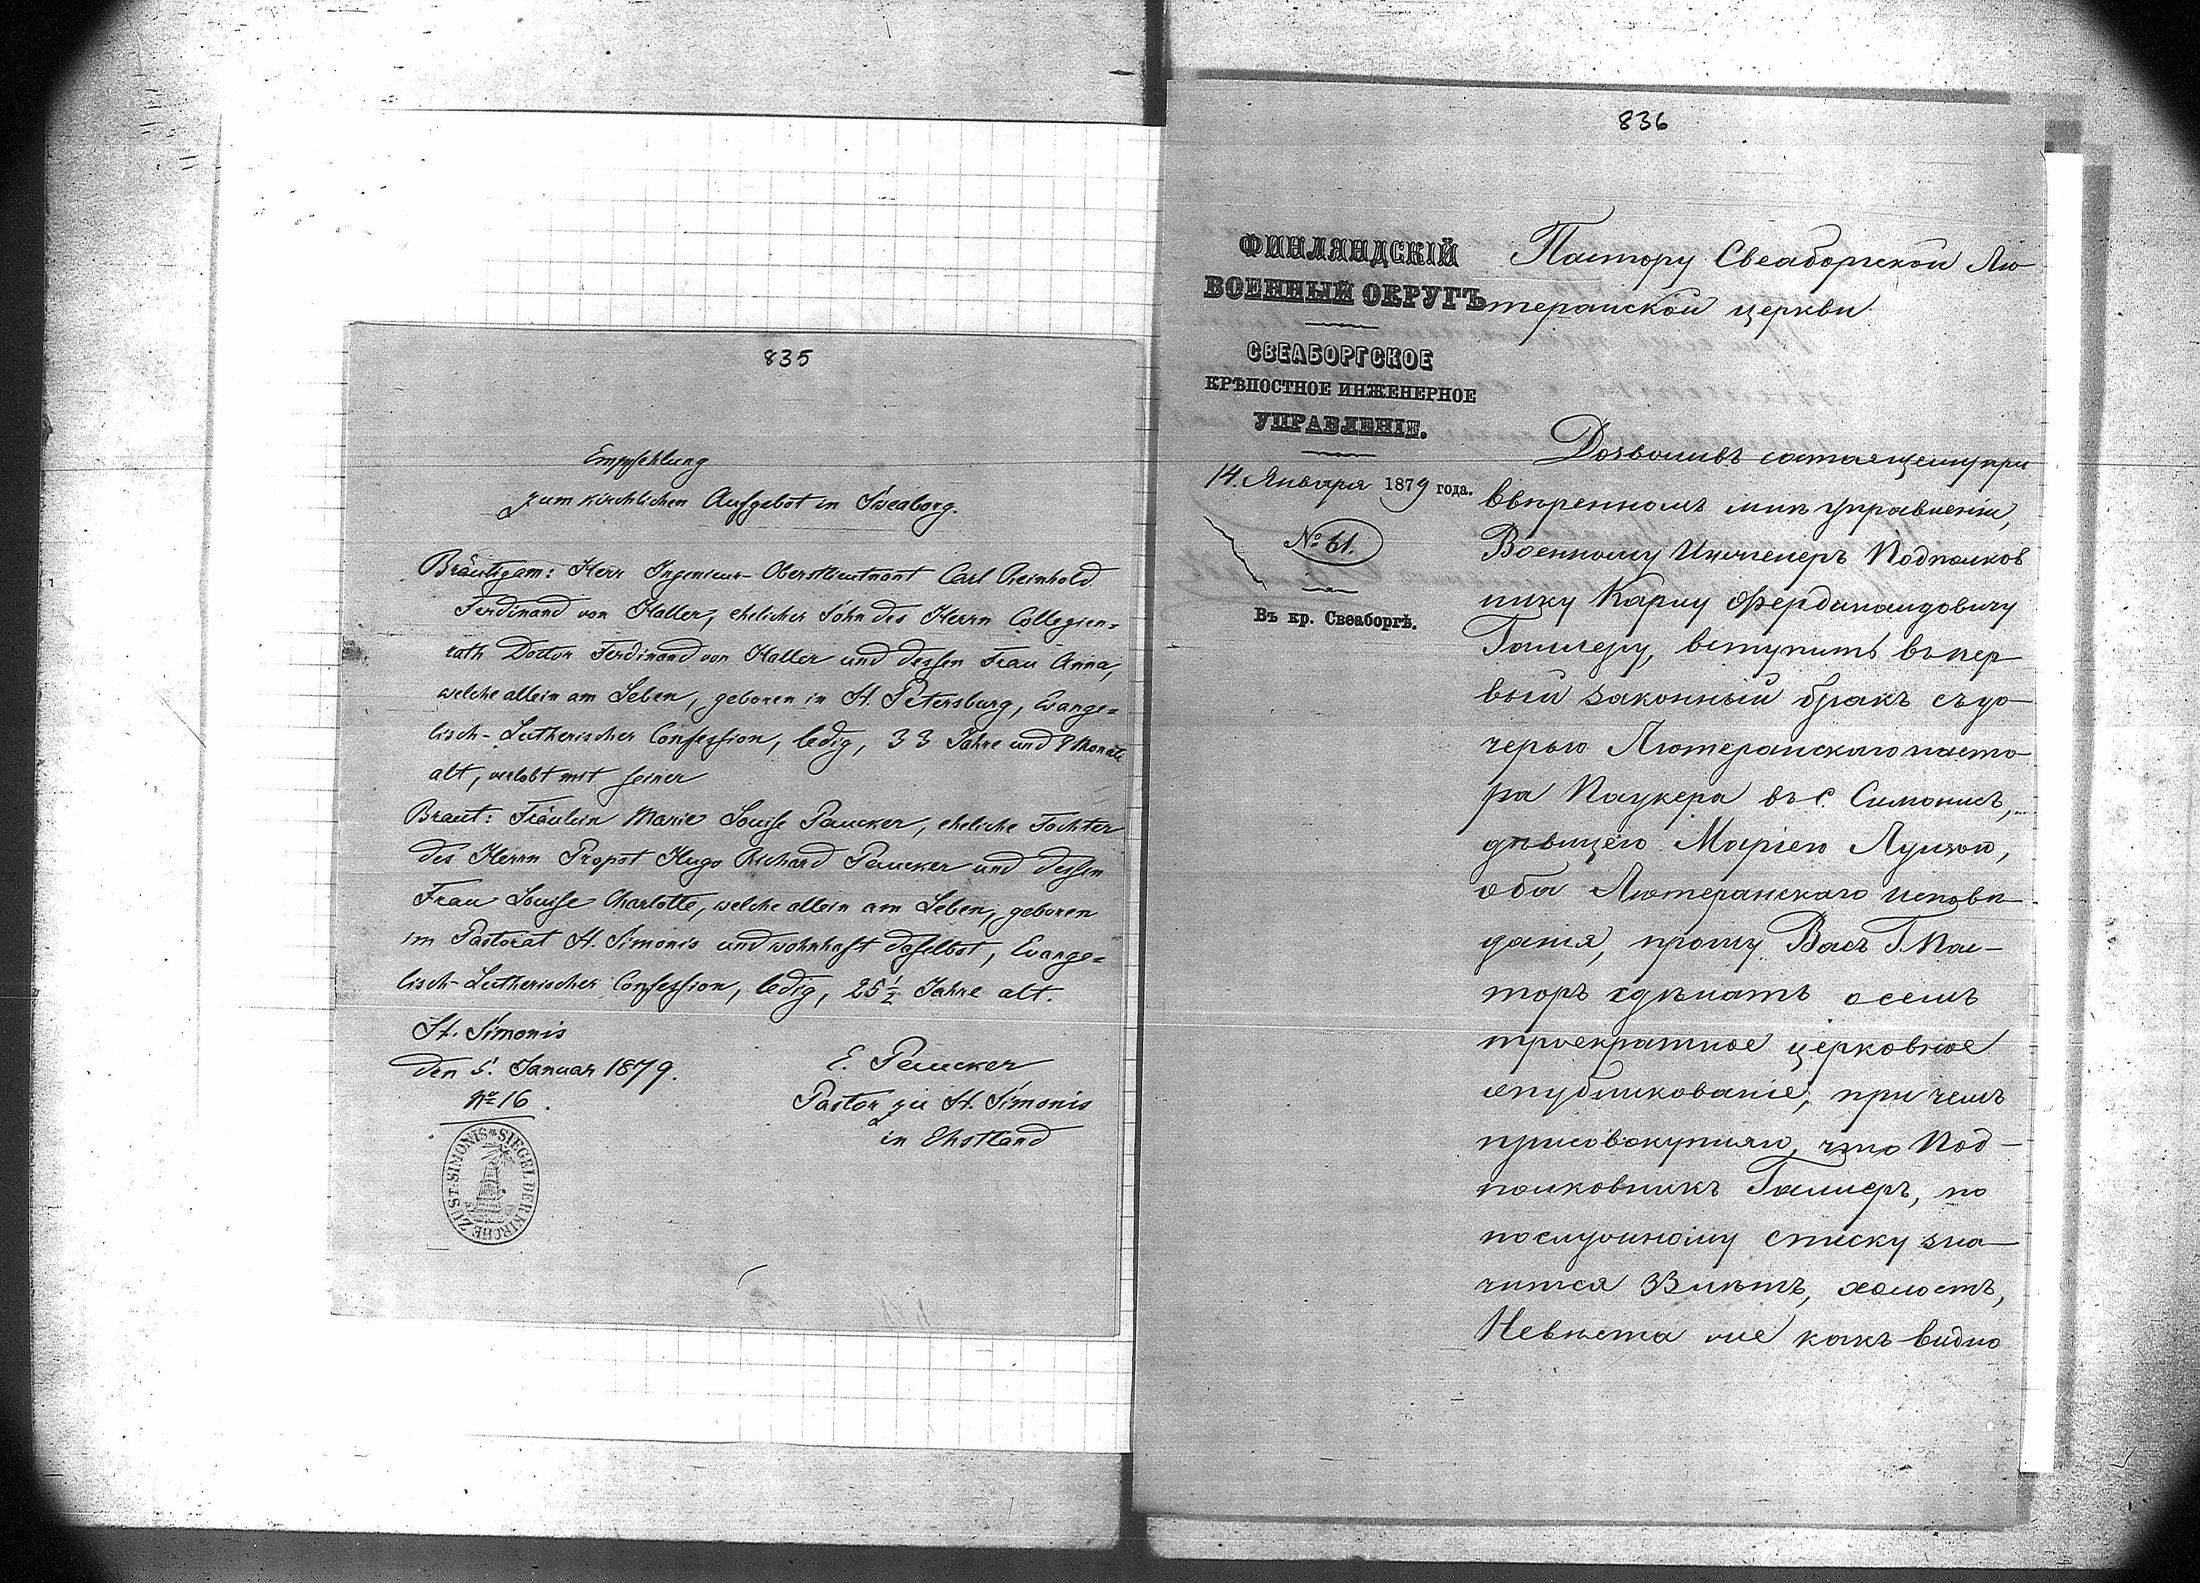 835
Empfehlung
zum kirchlichen Aufgebot in Sweaborg.
Bräutigam: Herr Ingenieur-Oberstlieutnant Carl Reinhold
Ferdinand von Haller, ehelicher Sohn des Herrn Collegien=
rath Doctor Ferdinand von Haller und dessen Frau Anna,
welche allein am Leben, geboren in St. Petersburg, Evange=
lisch-Lutherischer Confession, ledig, 33 Jahre und Monate
alt, verlobt mit seiner
Braut: Fräulein Marie Louise Paucker, eheliche Tochter
des Herrn Propst Hugo Richard Paucker und dessen
Frau Louise Charlotte, welche allein am Leben, geboren
im Pastorat St. Simonis und wohnhaft daselbst, Evange=
lisch-Lutherischer Confession, ledig, 25 1/2 Jahre alt.
St. Simonis
den 5. Januar 1879.
№ 16.
E. Paucker
Pastor zu St. Simonis
in Ehstland
SIEGEL DER KIRCHE ZU ST. SIMONIS
836
ФИНЛЯНДСКІЙ
ВОЕННЫЙ ОКРУГЪ
СВЕАБОРГСКОЕ
КРѢПОСТНОЕ ИНЖЕНЕРНОЕ
УПРАВЛЕНІЕ.
14. Января 1879 года.
№ 61.
Въ кр. Свеаборгѣ.
Пастору Свеаборгской Лю
теранской церкви
Дозволивъ состоящему при
ввѣренномъ мнѣ управленіи,
Военному Инженеръ Подполков
нику Карлу Фердинандовичу
Галлеру, вступить въ пер
вый законный бракъ съ до-
черью Лютеранскаго пасто-
ра Паукера въ С. Симонисъ,
дѣвицею Маріею Луизою,
оба Лютеранскаго исповѣ
данія, прошу Васъ Г. Пас-
торъ сдѣлать о семъ
троекратное церковное
опубликованіе, при чемъ
присовокупляю, что Под-
полковникъ Галлеръ, по
послужному списку зна-
чится 33 лѣтъ, холостъ,
Невѣста же какъ видно